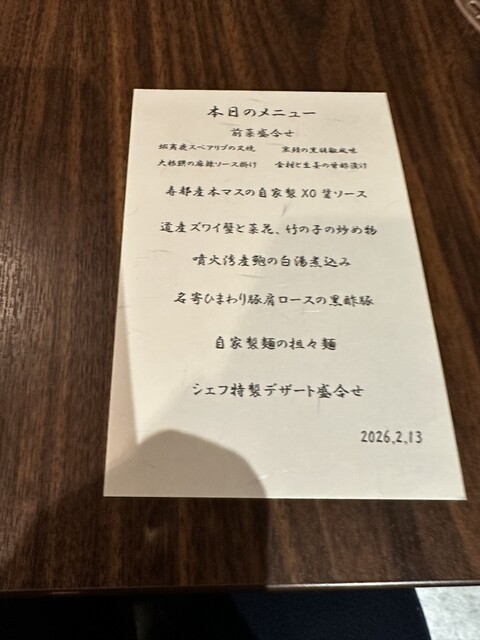 本日のメニュー
前菜盛合せ
蝦夷鹿スペアリブの叉焼 寒鰆の黒胡椒風味
大根餅の麻辣ソース掛け 金柑と生姜の甘酢漬け
寿都産本マスの自家製XO醬ソース
道産ズワイ蟹と菜花、竹の子の炒め物
噴火湾産鮑の白湯煮込み
名寄ひまわり豚肩ロースの黒酢豚
自家製麺の担々麺
シェフ特製デザート盛合せ
2026,2,13